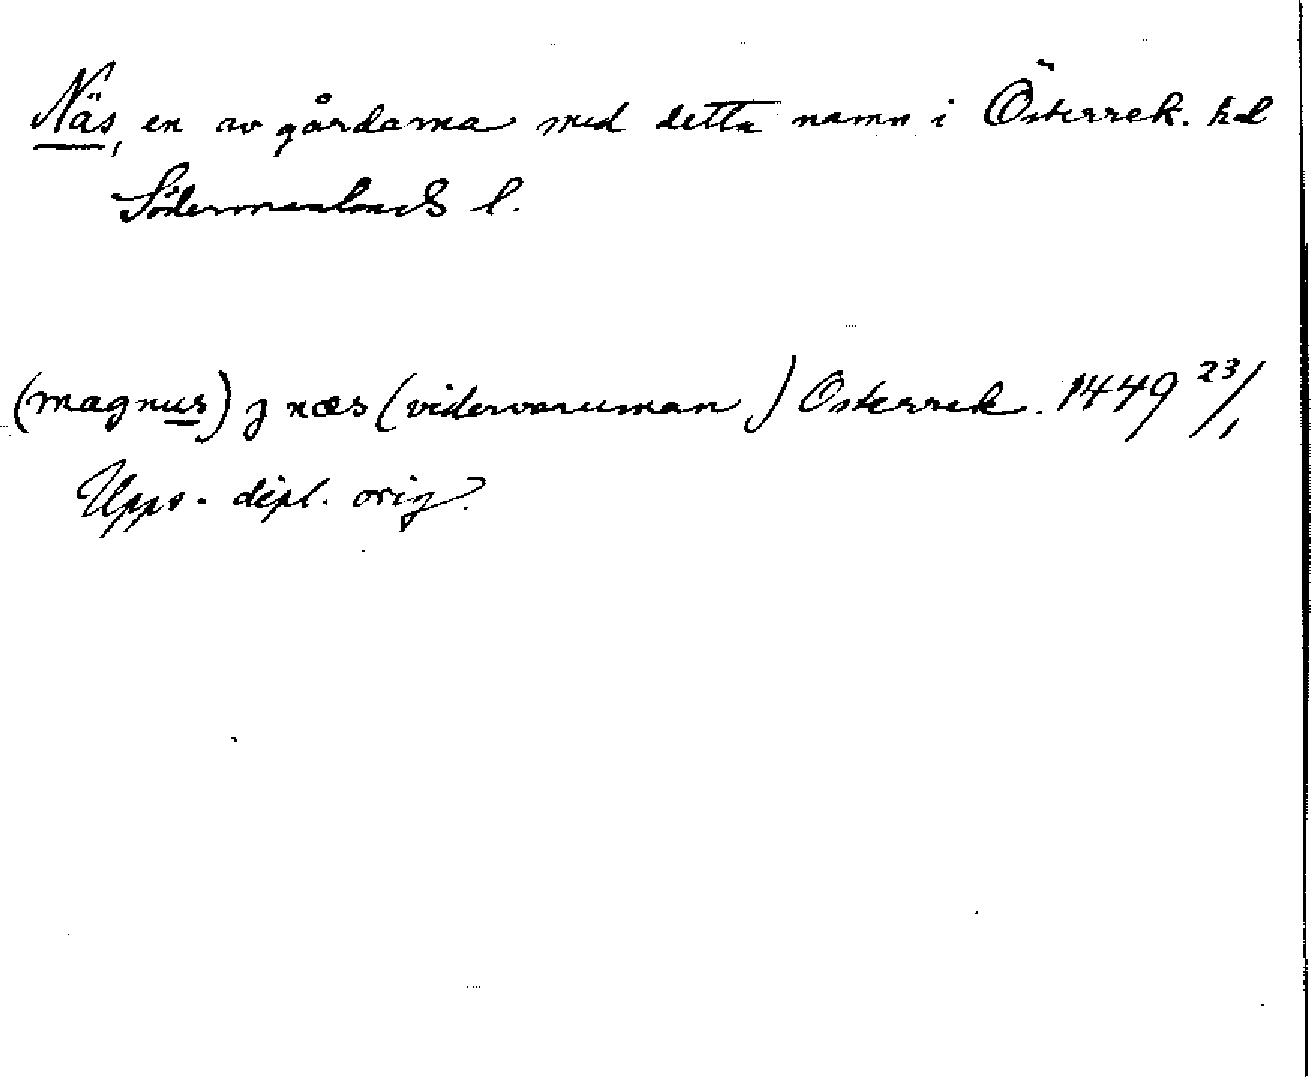 Näs, en av gårdarna med detta namn i Österrek. hd
Södermanlands l.
(magnus) j næs (vidervaruman) Österrek. 1449 23/1
Upps. dipl. orig.